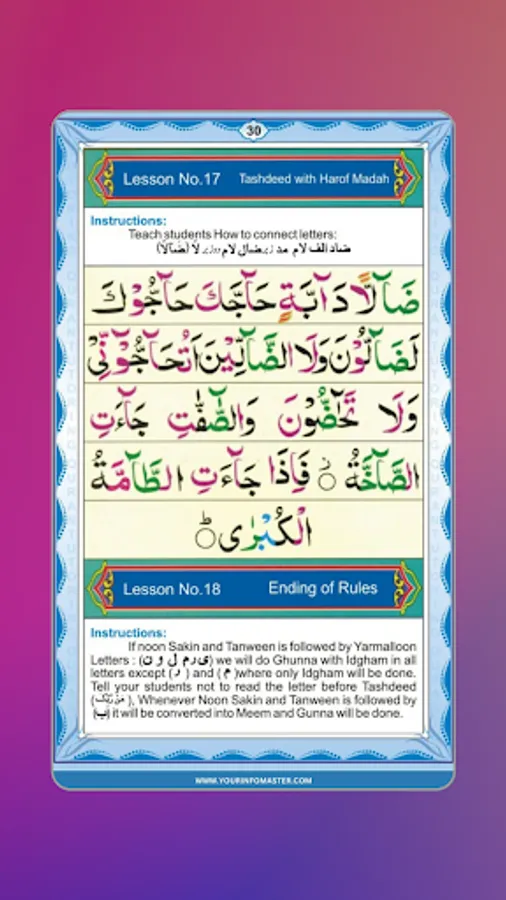 30
Lesson No.17 Tashdeed with Harof Madah
Instructions:
Teach students How to connect letters:
ضَآلًّا دَآبَّةٍ حَآجَّكَ حَآجُّوْكَ
لَضَآلُّوْنَ وَلَا الضَّآلِّيْنَ اَتُحَآجُّوْٓنِّیْ
وَلَا تَحٰٓضُّوْنَ وَالصّٰٓفّٰتِ جَآءَتِ
الصَّآخَّةُ ۫ فَاِذَا جَآءَتِ الطَّآمَّةُ
الْكُبْرٰى ۖ
Lesson No.18 Ending of Rules
Instructions:
If noon Sakin and Tanween is followed by Yarmalloon
Letters : (ی ر م ل و ن) we will do Ghunna with Idgham in all
letters except (ر) and (م) where only Idgham will be done.
Tell your students not to read the letter before Tashdeed
Whenever Noon Sakin and Tanween is followed by
(ب) it will be converted into Meem and Gunna will be done.
WWW.YOURINFOMASTER.COM